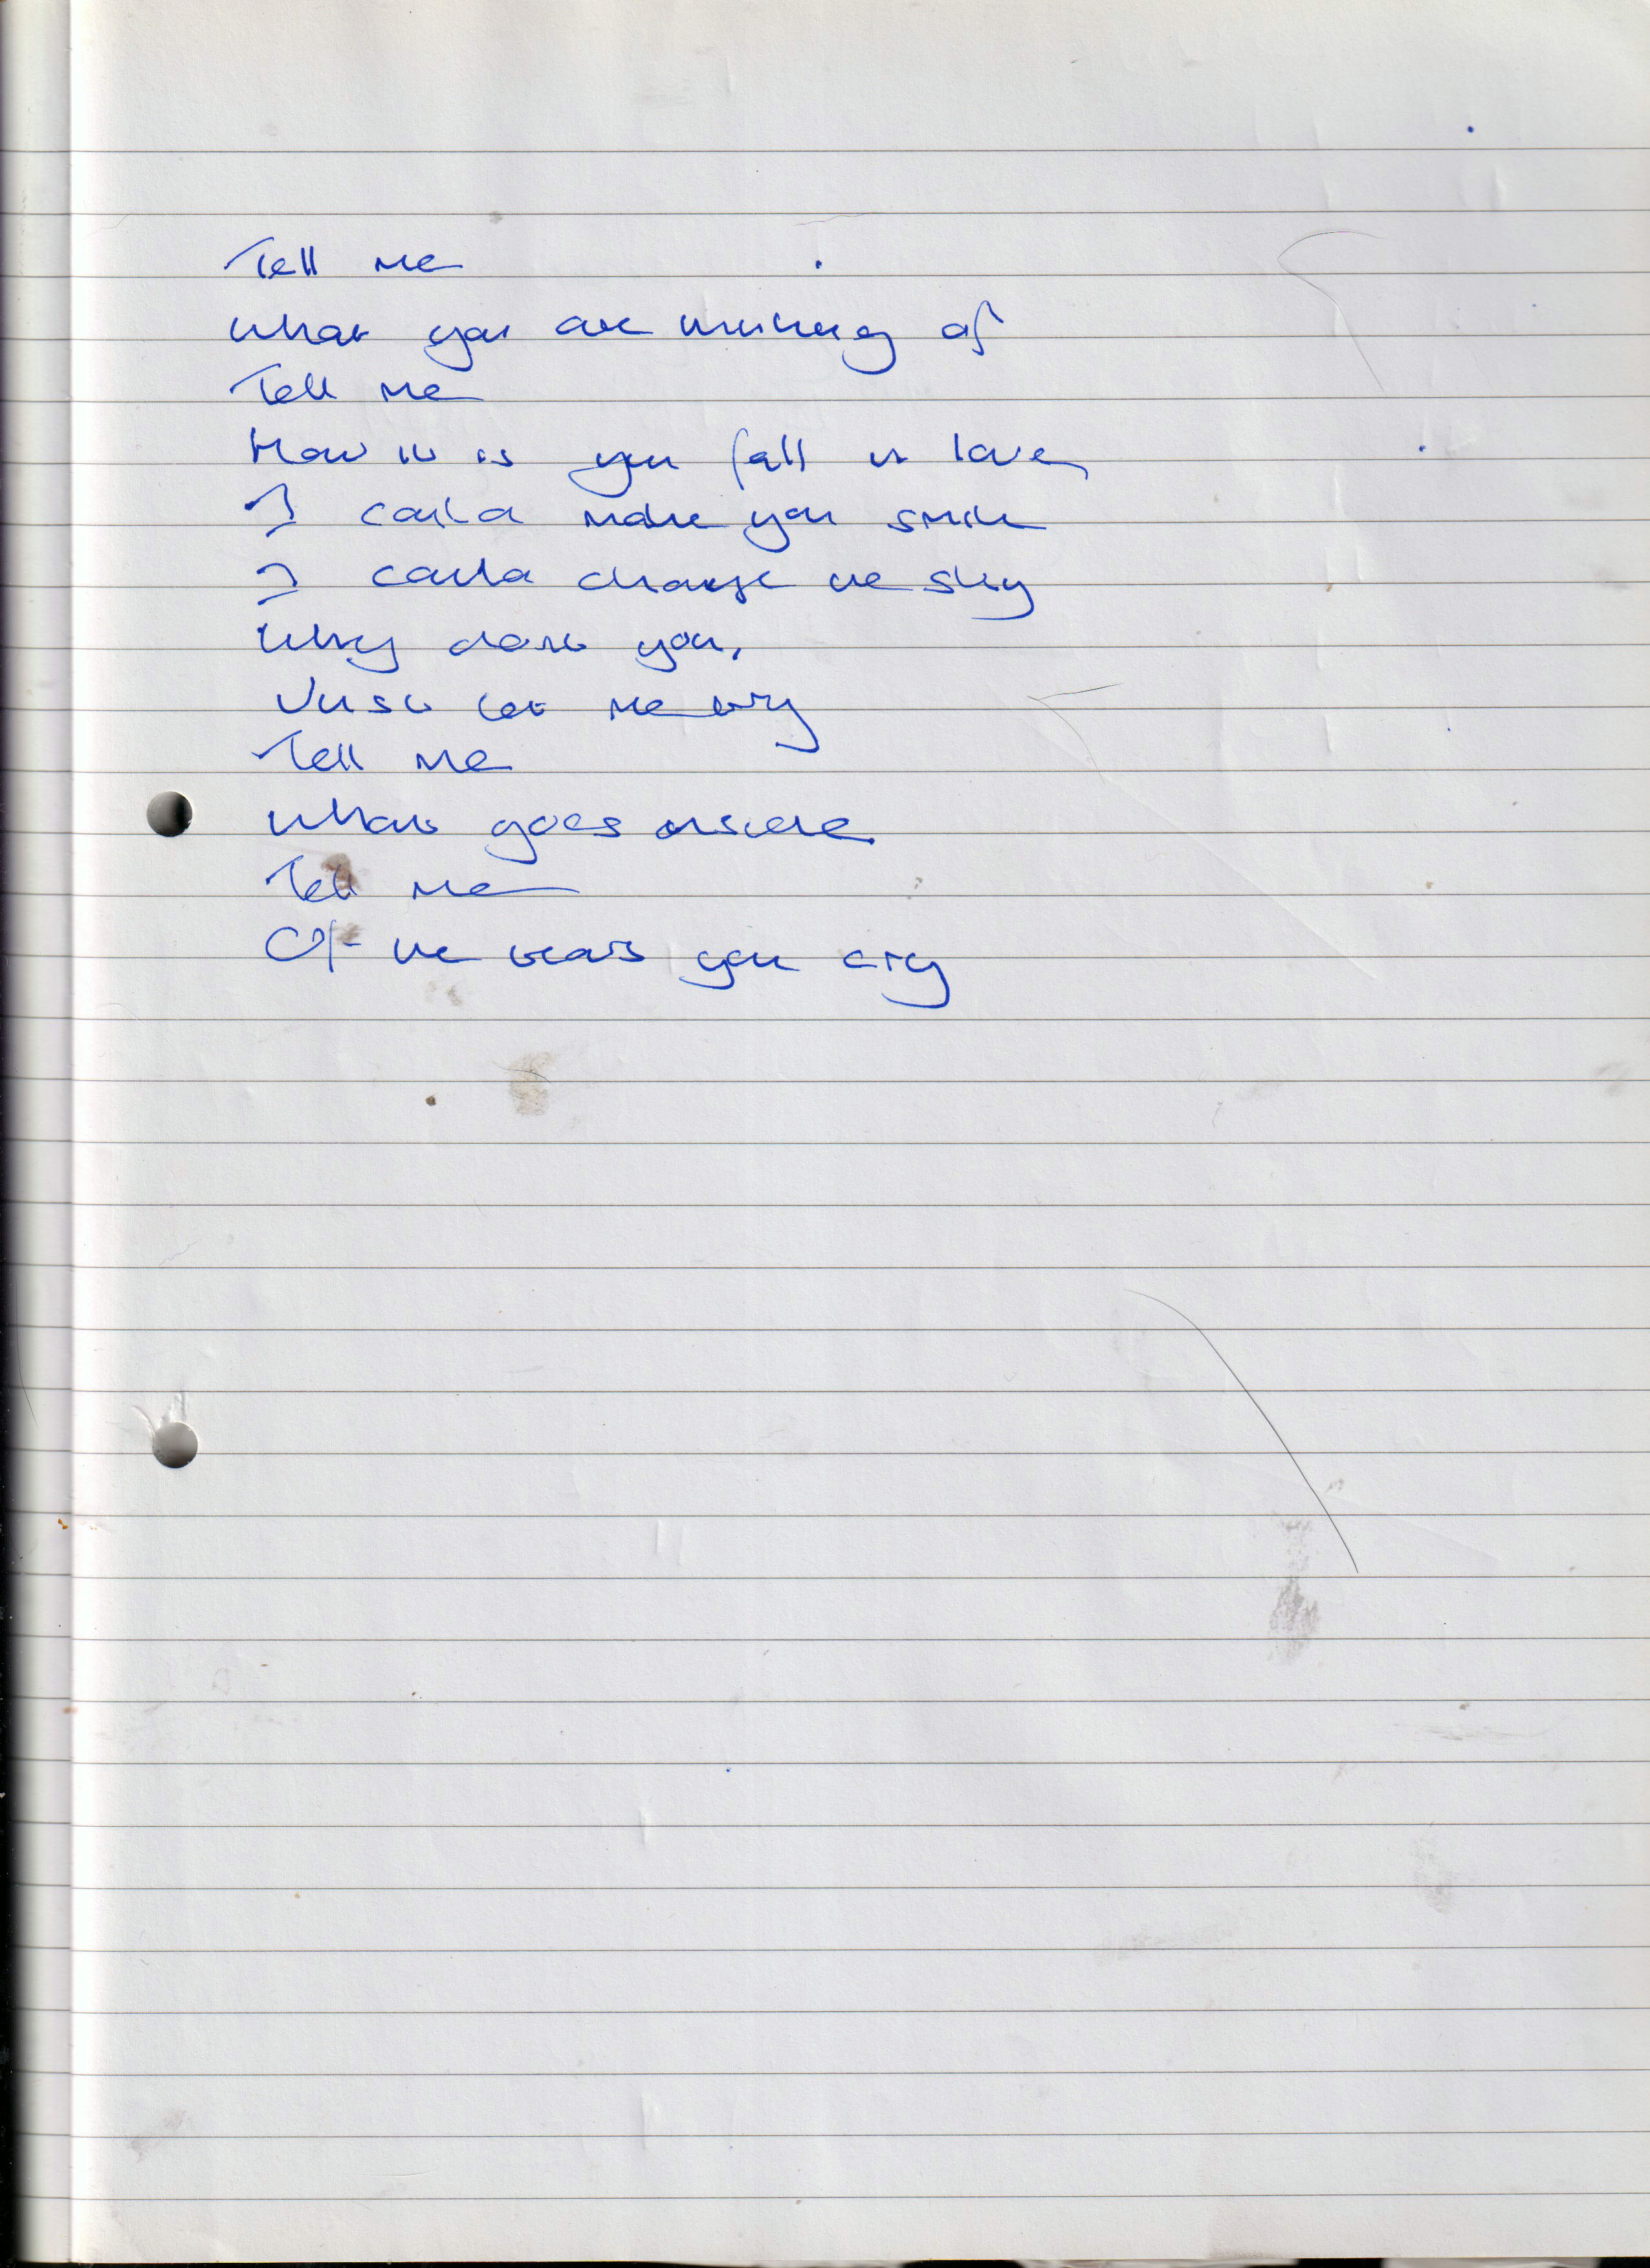 Tell me
what you are thinking of
Tell me
How it is you fall in love
I could make you smile
I could change the sky
Why dont you,
Just let me try
Tell me
whats goes inside
Tell me
Of the tears you cry